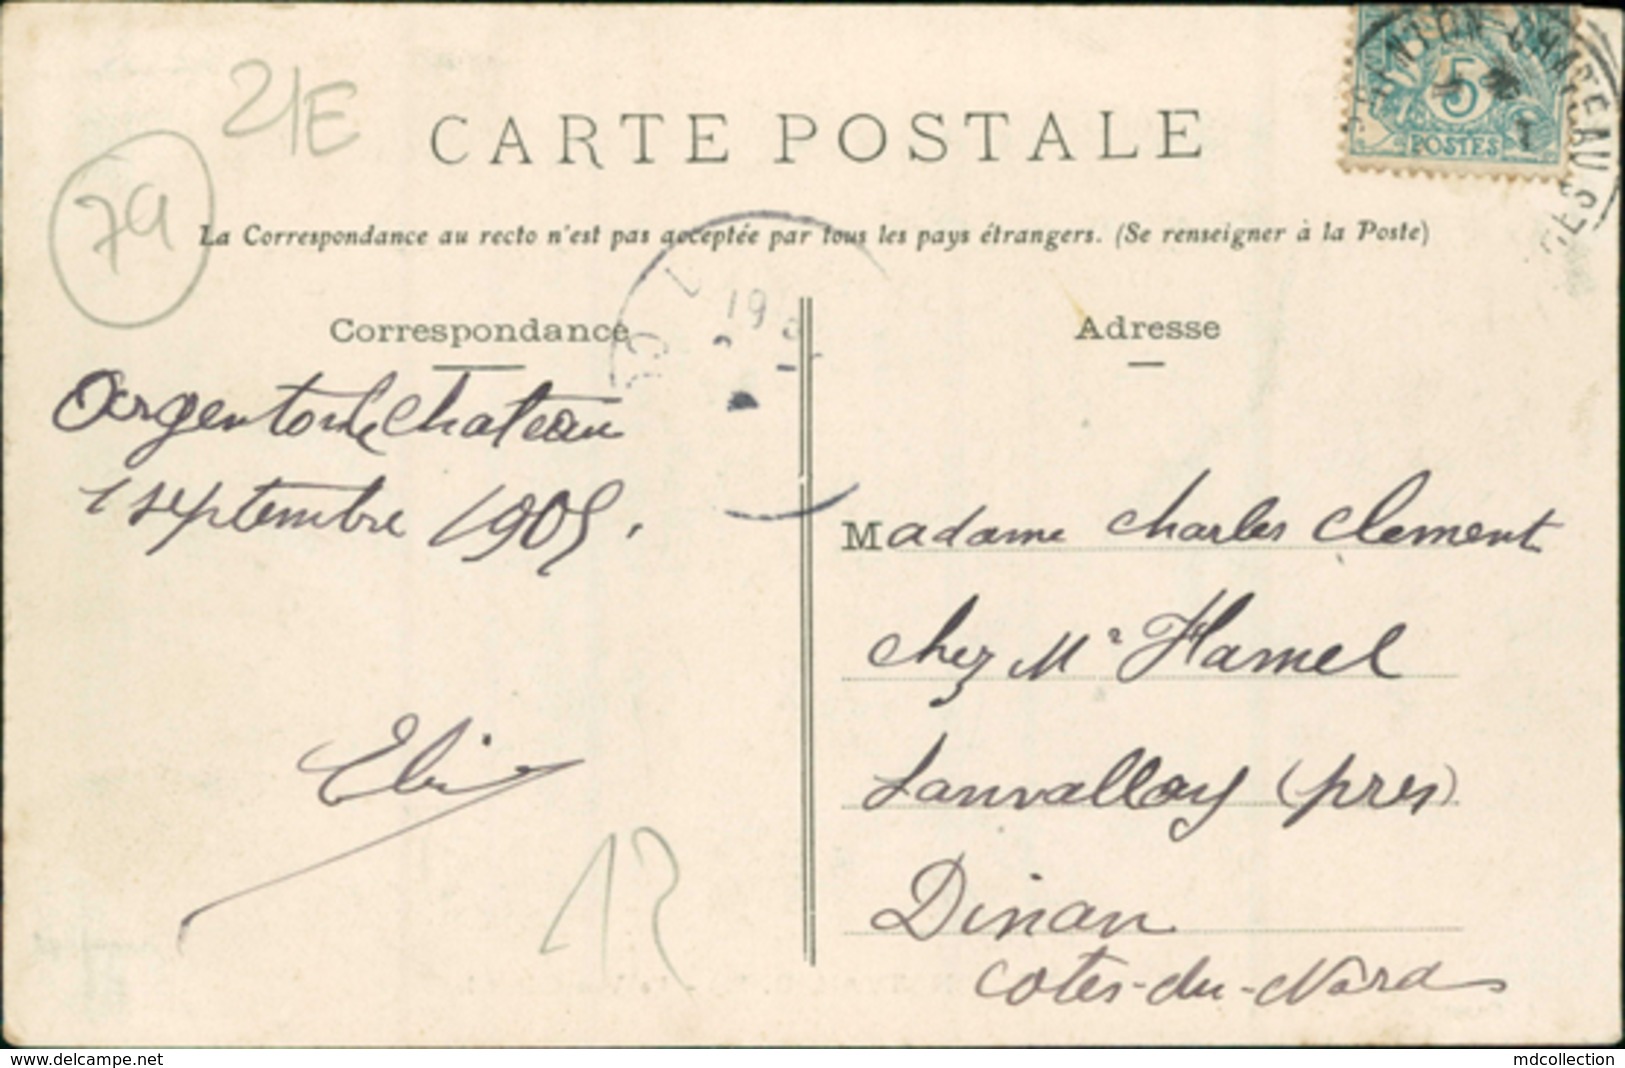 21E
79
CARTE POSTALE
5
POSTES
La Correspondance au recto n'est pas acceptée par tous les pays étrangers. (Se renseigner à la Poste)
Correspondance
Argenton Chateau
1 septembre 1905.
12
Adresse
Madame Charles Clement
chez Mr Hamel
Lanvallay (pres)
Dinan
Cotes-du-Nord
www.delcampe.net
mdcollection